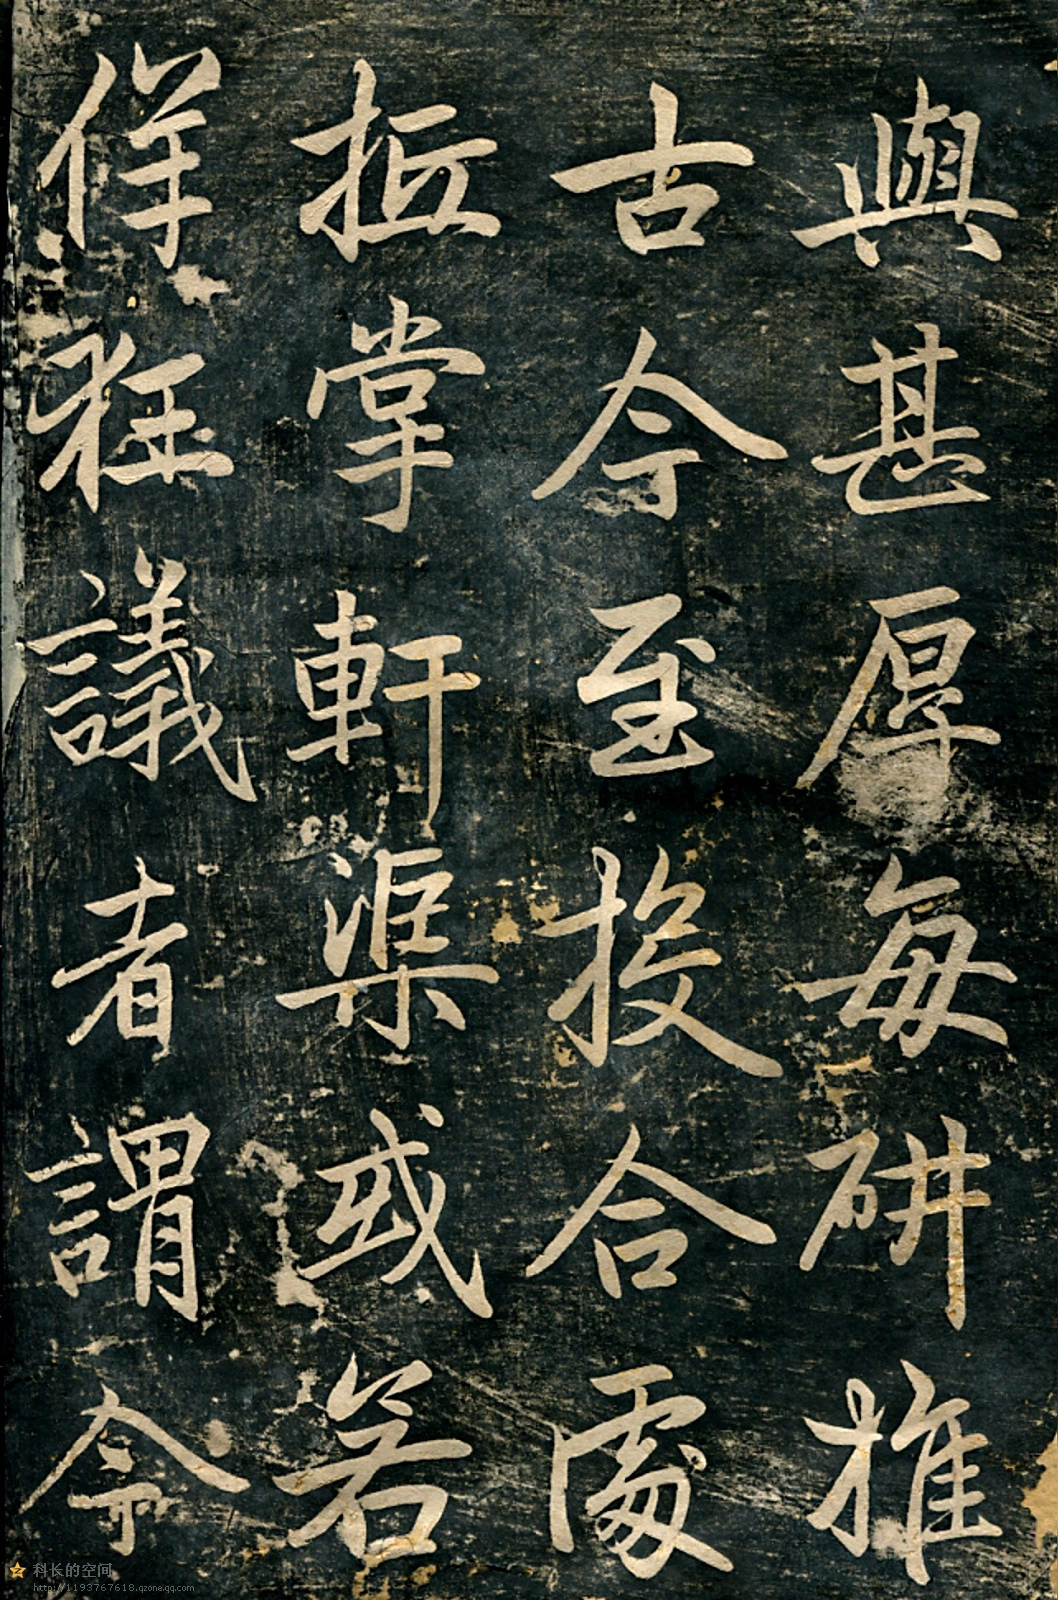 與甚厚每研推
古今至投合處
抵掌軒渠或若
佯狂議者謂今
科长的空间
http://1193767618.qzone.qq.com